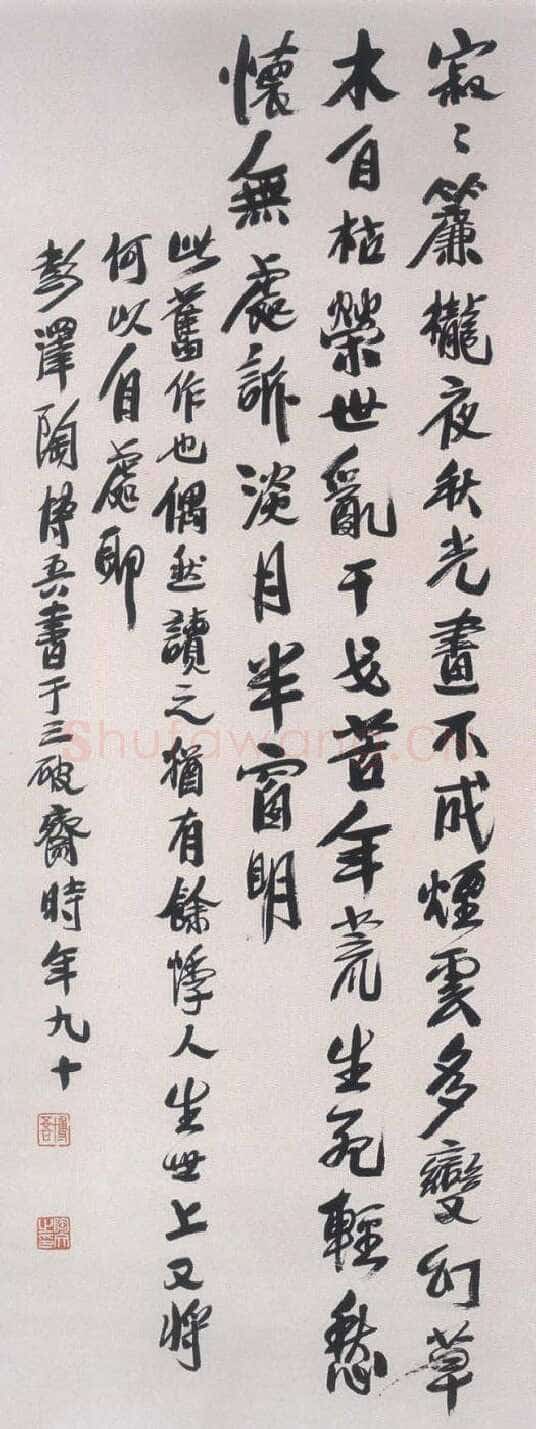 寂〻簾櫳夜秋光畫不成煙雲多變幻草
木自枯榮世亂干戈苦年荒生死輕愁
懷人無處訴淡月半窗明
此舊作也偶然讀之猶有餘悸人生世上又將
何以自處耶
彭澤陶博吾書于三破齋時年九十
博吾
Shufawang.cn